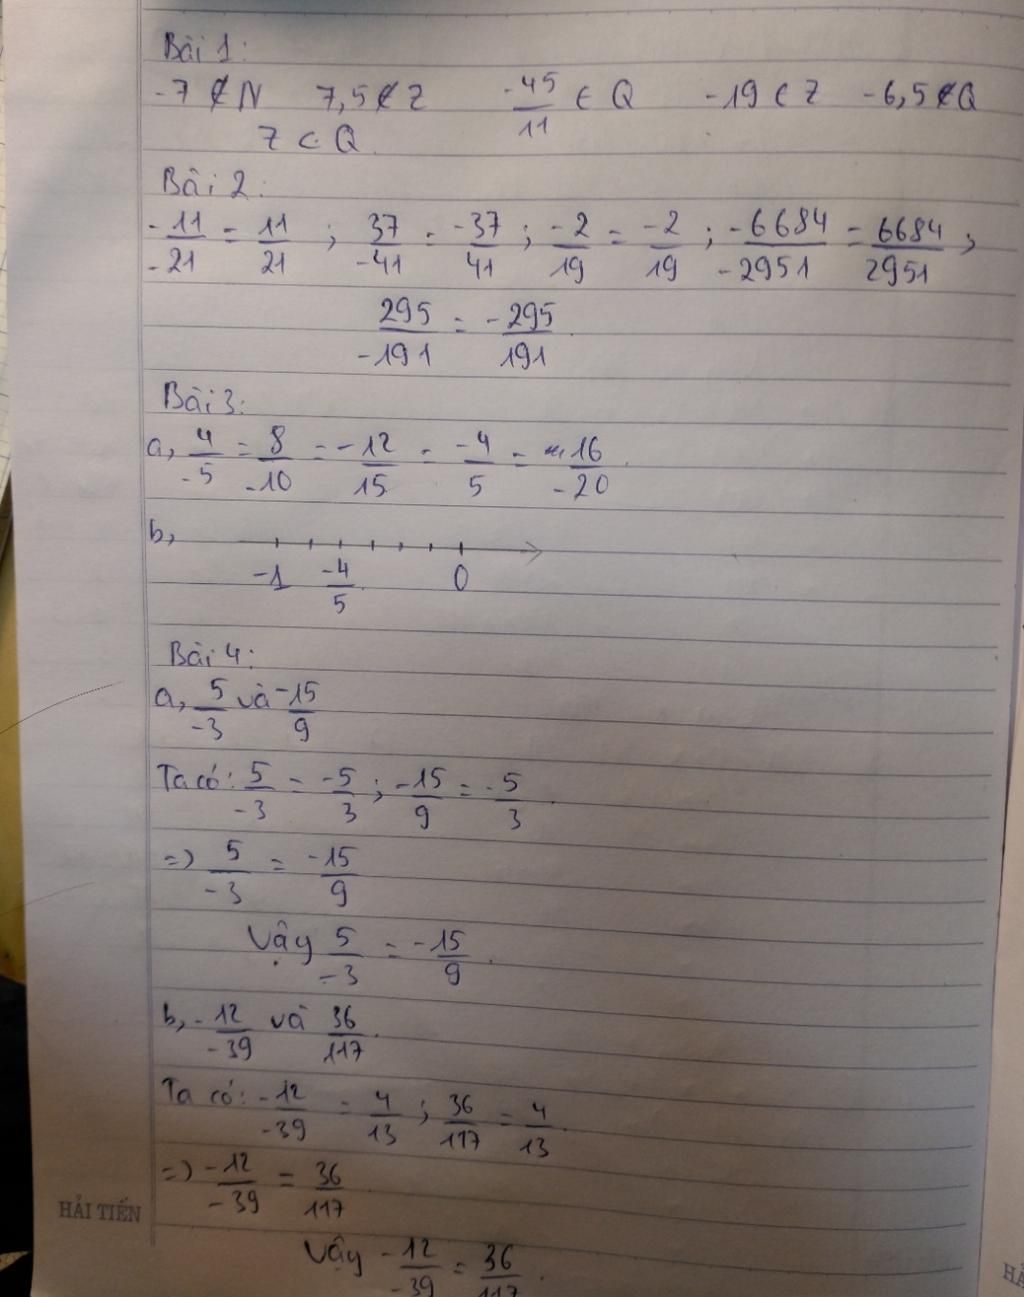 Bài 1:
-7 ∉ N 7,5 ∉ Z -45/11 ∈ Q -19 ∈ Z -6,5 ∉ Q
Z ⊂ Q.
Bài 2:
-11/-21 = 11/21 ; 37/-41 = -37/41 ; -2/19 = -2/19 ; -6684/-2951 = 6684/2951 ;
295/-191 = -295/191.
Bài 3:
a, 4/-5 = 8/-10 = -12/15 = -4/5 = 16/-20.
b,
-1 -4/5 0
Bài 4:
a, 5/-3 và -15/9
Ta có: 5/-3 = -5/3 ; -15/9 = -5/3.
=) 5/-3 = -15/9
Vậy 5/-3 = -15/9.
b, -12/-39 và 36/117.
Ta có: -12/-39 = 4/13 ; 36/117 = 4/13.
=) -12/-39 = 36/117
HẢI TIẾN
Vậy -12/-39 = 36/117.